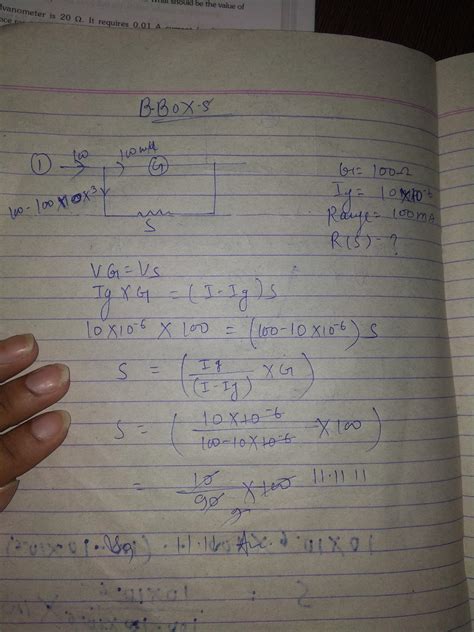 What should be the value of
lvanometer is 20 Ω. It requires 0.01 A
B-BOX-5
① 100 100mA G
100-100×10×3
S
G = 100Ω
Ig = 10×10⁻⁶
Range = 100mA
R(S) = ?
VG = VS
Ig × G = (I - Ig) S
10×10⁻⁶ × 100 = (100-10×10⁻⁶) S
S = ( Ig / (I - Ig) × G )
S = ( 10×10⁻⁶ / 100-10×10⁻⁶ × 100 )
= 10 / 90 × 100 11.11 11
9